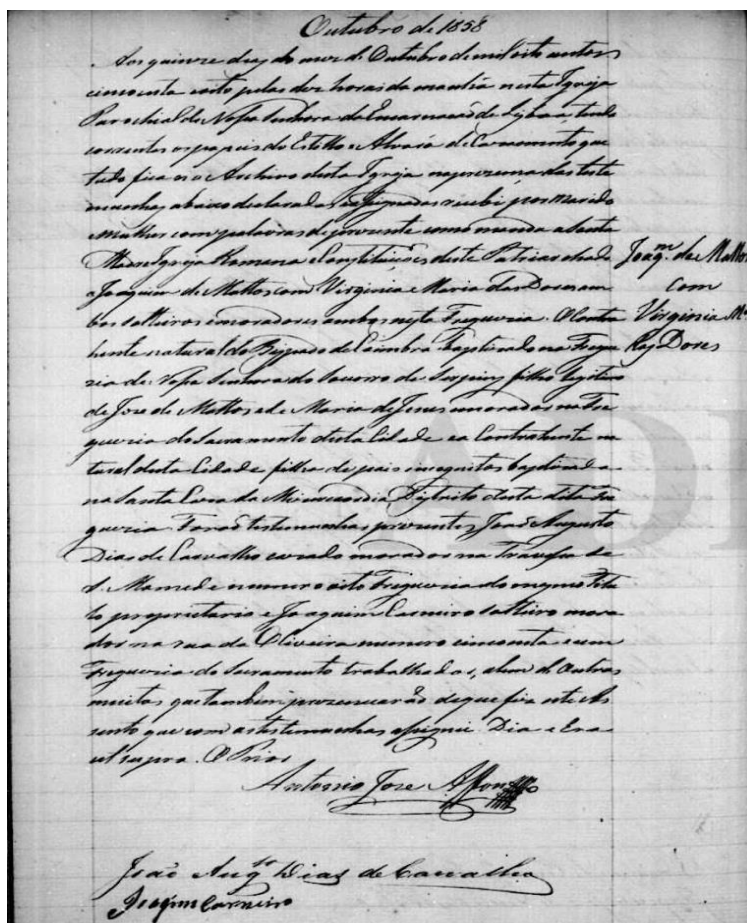 Outubro de 1858
Aos quinze dias do mez de Outubro de mil oito centos
cincoenta e oito pelas dez horas da manhã nesta Igreja
Parochial de Nossa Senhora da Encarnação de Lisboa, tendo
correntes os papeis do Estillo e Alvará de Cazamento que
tudo fica no Archivo desta Igreja na prezença das teste
munhas abaixo declaradas e assignadas recebi por marido
e mulher com palavras de prezente como manda a Santa
Madre Igreja Romana e Constituições deste Patriarchado
a Joaquim de Mattos com Virginia Maria das Dores am
bos solteiros e moradores ambos nesta Freguezia. O Contra
hente natural do Bispado de Coimbra baptizado na Fregue
zia de Nossa Senhora do Socorro de Serpins filho legitimo
de Jose de Mattos e de Maria de Jesus morador na Fre
guezia do Sacramento desta Cidade e a Contrahente na
tural desta Cidade filha de pais incognitos baptizada
na Santa Caza da Mizericordia Districto desta dita Fre
guezia. Forão testemunhas prezentes, João Augusto
Dias de Carvalho cazado morador na Travessa de
S. Mamede numero oito Freguezia do mesmo Titu
lo proprietario e Joaquim Carneiro solteiro mora
dor na rua da Oliveira numero cincoenta e um
Freguezia do Sacramento trabalhador, alem de outras
muitas que tambem prezencearão de que fiz este As
sento que com as testemunhas assignei Dia e Era
ut supra. O Prior
Antonio Jose Affonso
João Aug.to Dias de Carvalho
Joaquim Carneiro
Joaq.m de Mattos
com
Virginia M.a
das Dores
AD